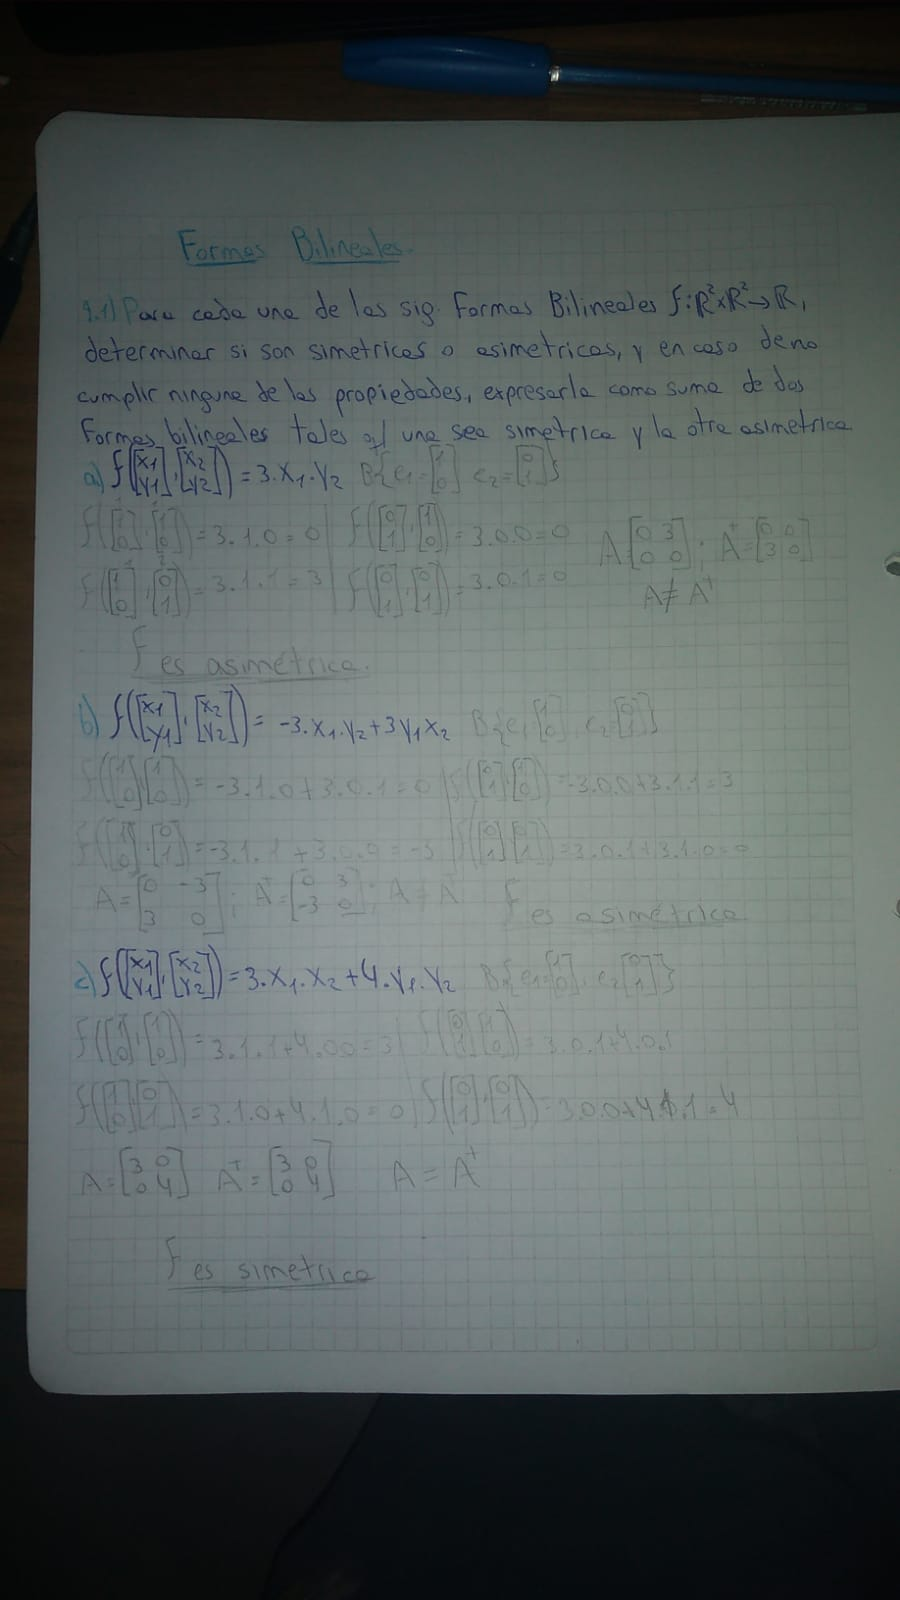 Formas Bilineales.
1.1) Para cada una de las sig. Formas Bilineales f: R²xR² → R,
determinar si son simetricas o asimetricas, y en caso de no
cumplir ninguna de las propiedades, expresarla como suma de dos
formas bilineales tales q/ una sea simetrica y la otra asimetrica
a) f([x1 y1], [x2 y2]) = 3.x1.y2 B{e1=[1 0] e2=[0 1]}
f([1 0], [1 0]) = 3.1.0 = 0 f([0 1], [1 0]) = 3.0.0=0 A[0 3 0 0]; A^t=[0 0 3 0]
f([1 0], [0 1]) = 3.1.1 = 3 f([0 1], [0 1]) = 3.0.1=0 A ≠ A^t
F es asimétrica.
b) f([x1 y1], [x2 y2]) = -3.x1.y2+3y1x2 B{e1[1 0], e2=[0 1]}
f([1 0] [1 0]) = -3.1.0+3.0.1=0 f([0 1] [1 0]) = -3.0.0+3.1.1=3
f([1 0], [0 1]) = -3.1.1+3.0.0 = -3 f([0 1] [0 1]) = 3.0.1+3.1.0=0
A=[0 -3 3 0]; A^t=[0 3 -3 0]; A ≠ A^t F es asimétrica
c) f([x1 y1], [x2 y2]) = 3.x1.x2+4.y1.y2 B{e1=[1 0], e2[0 1]}
f([1 0], [1 0]) = 3.1.1+4.00=3 f([0 1] [1 0]) = 3.0.1+4.0.1
f([1 0] [0 1]) = 3.1.0+4.1.0=0 f([0 1], [0 1]) = 3.0.0+4.1.1=4
A=[3 0 0 4] A^t=[3 0 0 4] A = A^t
F es simetrica